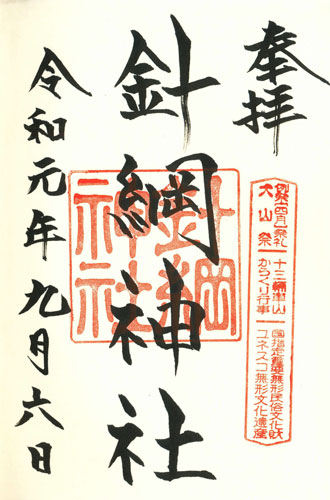 奉拝
針綱神社
針綱
神社
犬山祭
十三輛車山
からくり行事
国指定重要無形民俗文化財
ユネスコ無形文化遺産
令和元年九月六日